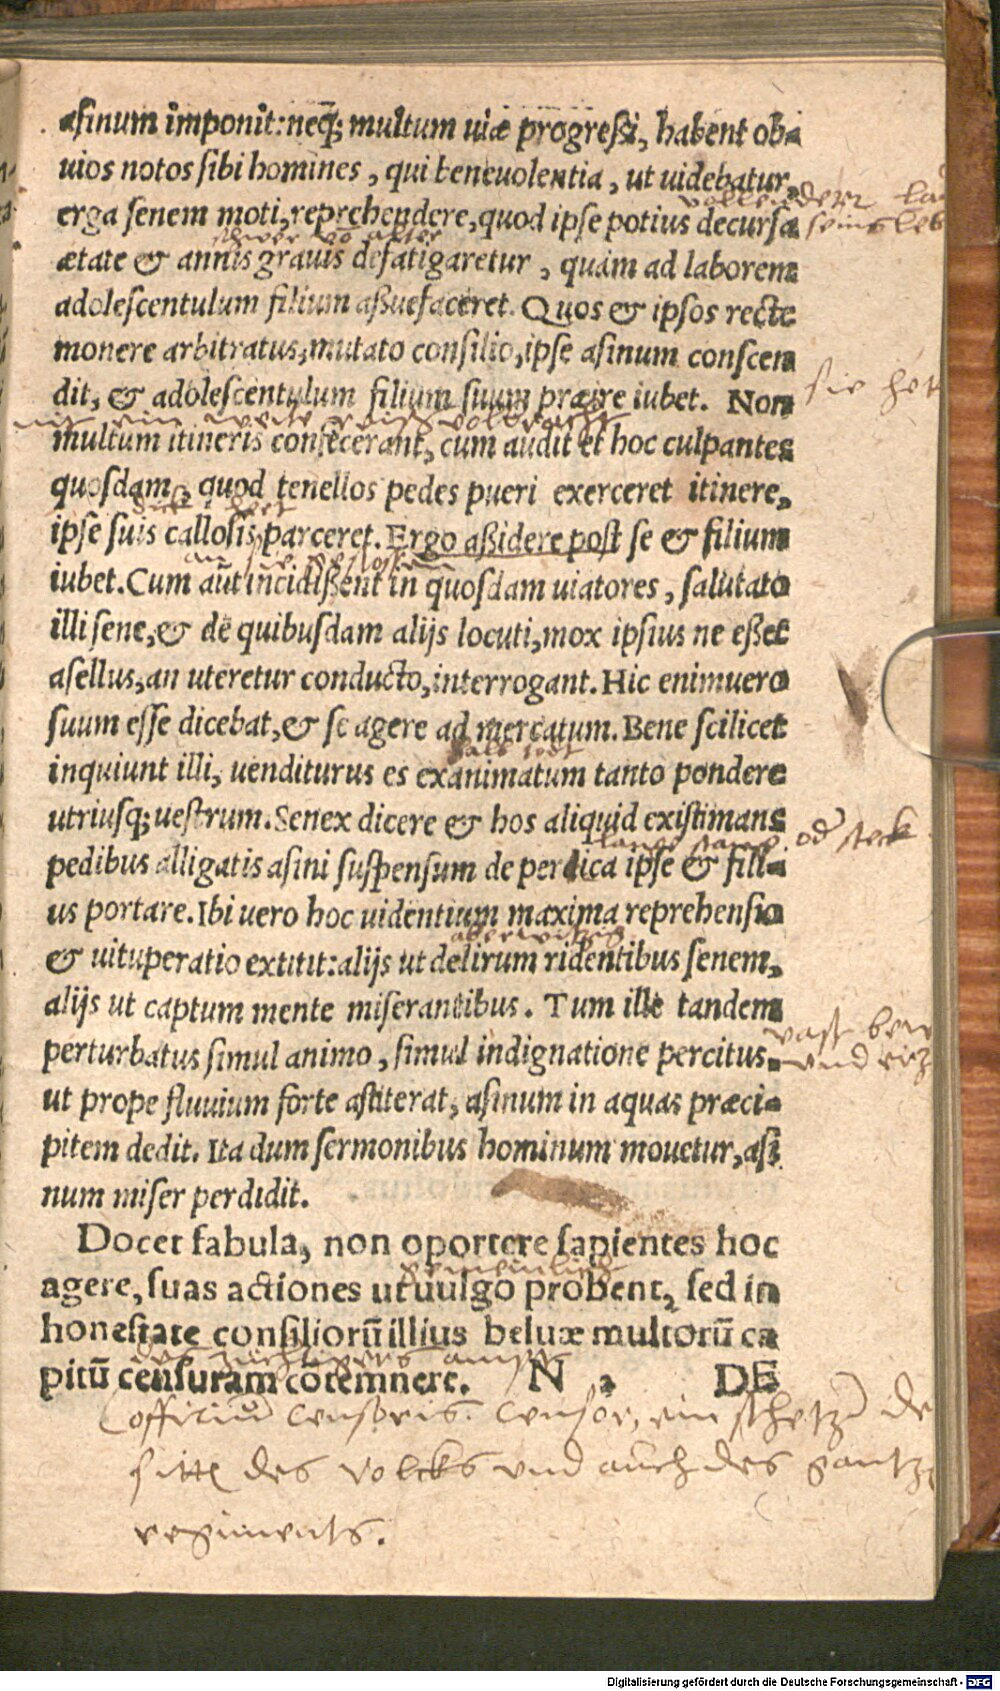 asinum imponit: neq̃; multum uiæ progreßi, habent ob-
uios notos sibi homines, qui beneuolentia, ut uidebatur,
vollendern
erga senem moti, reprehendere, quod ipse potius decursa
seins leb
schwer vō alter
ætate & annis grauis defatigaretur, quàm ad laborem
adolescentulum filium aßuefaceret. Quos & ipsos recte
monere arbitratus, mutato consilio, ipse asinum conscen
dit, & adolescentulum filium suum præire iubet. Non
sie het
nit ein weite reiß volbracht
multum itineris confecerant, cum audit et hoc culpantes
quosdam, quod tenellos pedes pueri exerceret itinere,
ipse suis callosis parceret. Ergo aßidere post se & filium
iubet. Cum aūt incidißent in quosdam uiatores, salutato
illi sene, & de quibusdam alijs locuti, mox ipsius ne eßet
asellus, an uteretur conducto, interrogant. Hic enimuero
suum esse dicebat, & se agere ad mercatum. Bene scilicet
halb todt
inquiunt illi, uenditurus es exanimatum tanto pondere
utriusq; uestrum. Senex dicere & hos aliquid existimans
lange stang od steck
pedibus alligatis asini suspensum de pertica ipse & fili-
us portare. Ibi uero hoc uidentium maxima reprehensio
aberwitzig
& uituperatio extitit: alijs ut delirum ridentibus senem,
alijs ut captum mente miserantibus. Tum ille tandem
vast
perturbatus simul animo, simul indignatione percitus,
und
ut prope fluuium forte astiterat, asinum in aquas præci-
pitem dedit. Ita dum sermonibus hominum mouetur, asi
num miser perdidit.
Docet fabula, non oportere sapientes hoc
gemeinlich
agere, suas actiones ut uulgo probent, sed in
honestate consiliorū illius beluæ multorū ca
des zuchtigers ampt
pitū censuram cōtemnere. N 2 DE
officiū Censoris. Censor, ein schetzer de
sitten des volcks und auch des gantzen
regiments.